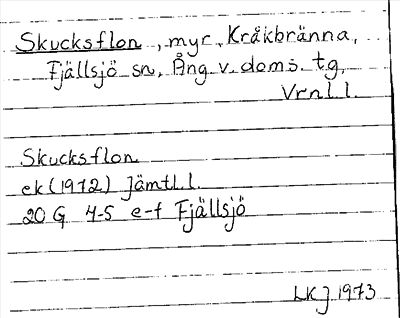 Skucksflon, myr, Kråkbränna,
Fjällsjö sn, Ång v. doms. tg,
Vrnl l.
Skucksflon
ek (1972) Jämtl. l.
20 G 4-5 e-f Fjällsjö
LKJ 1973